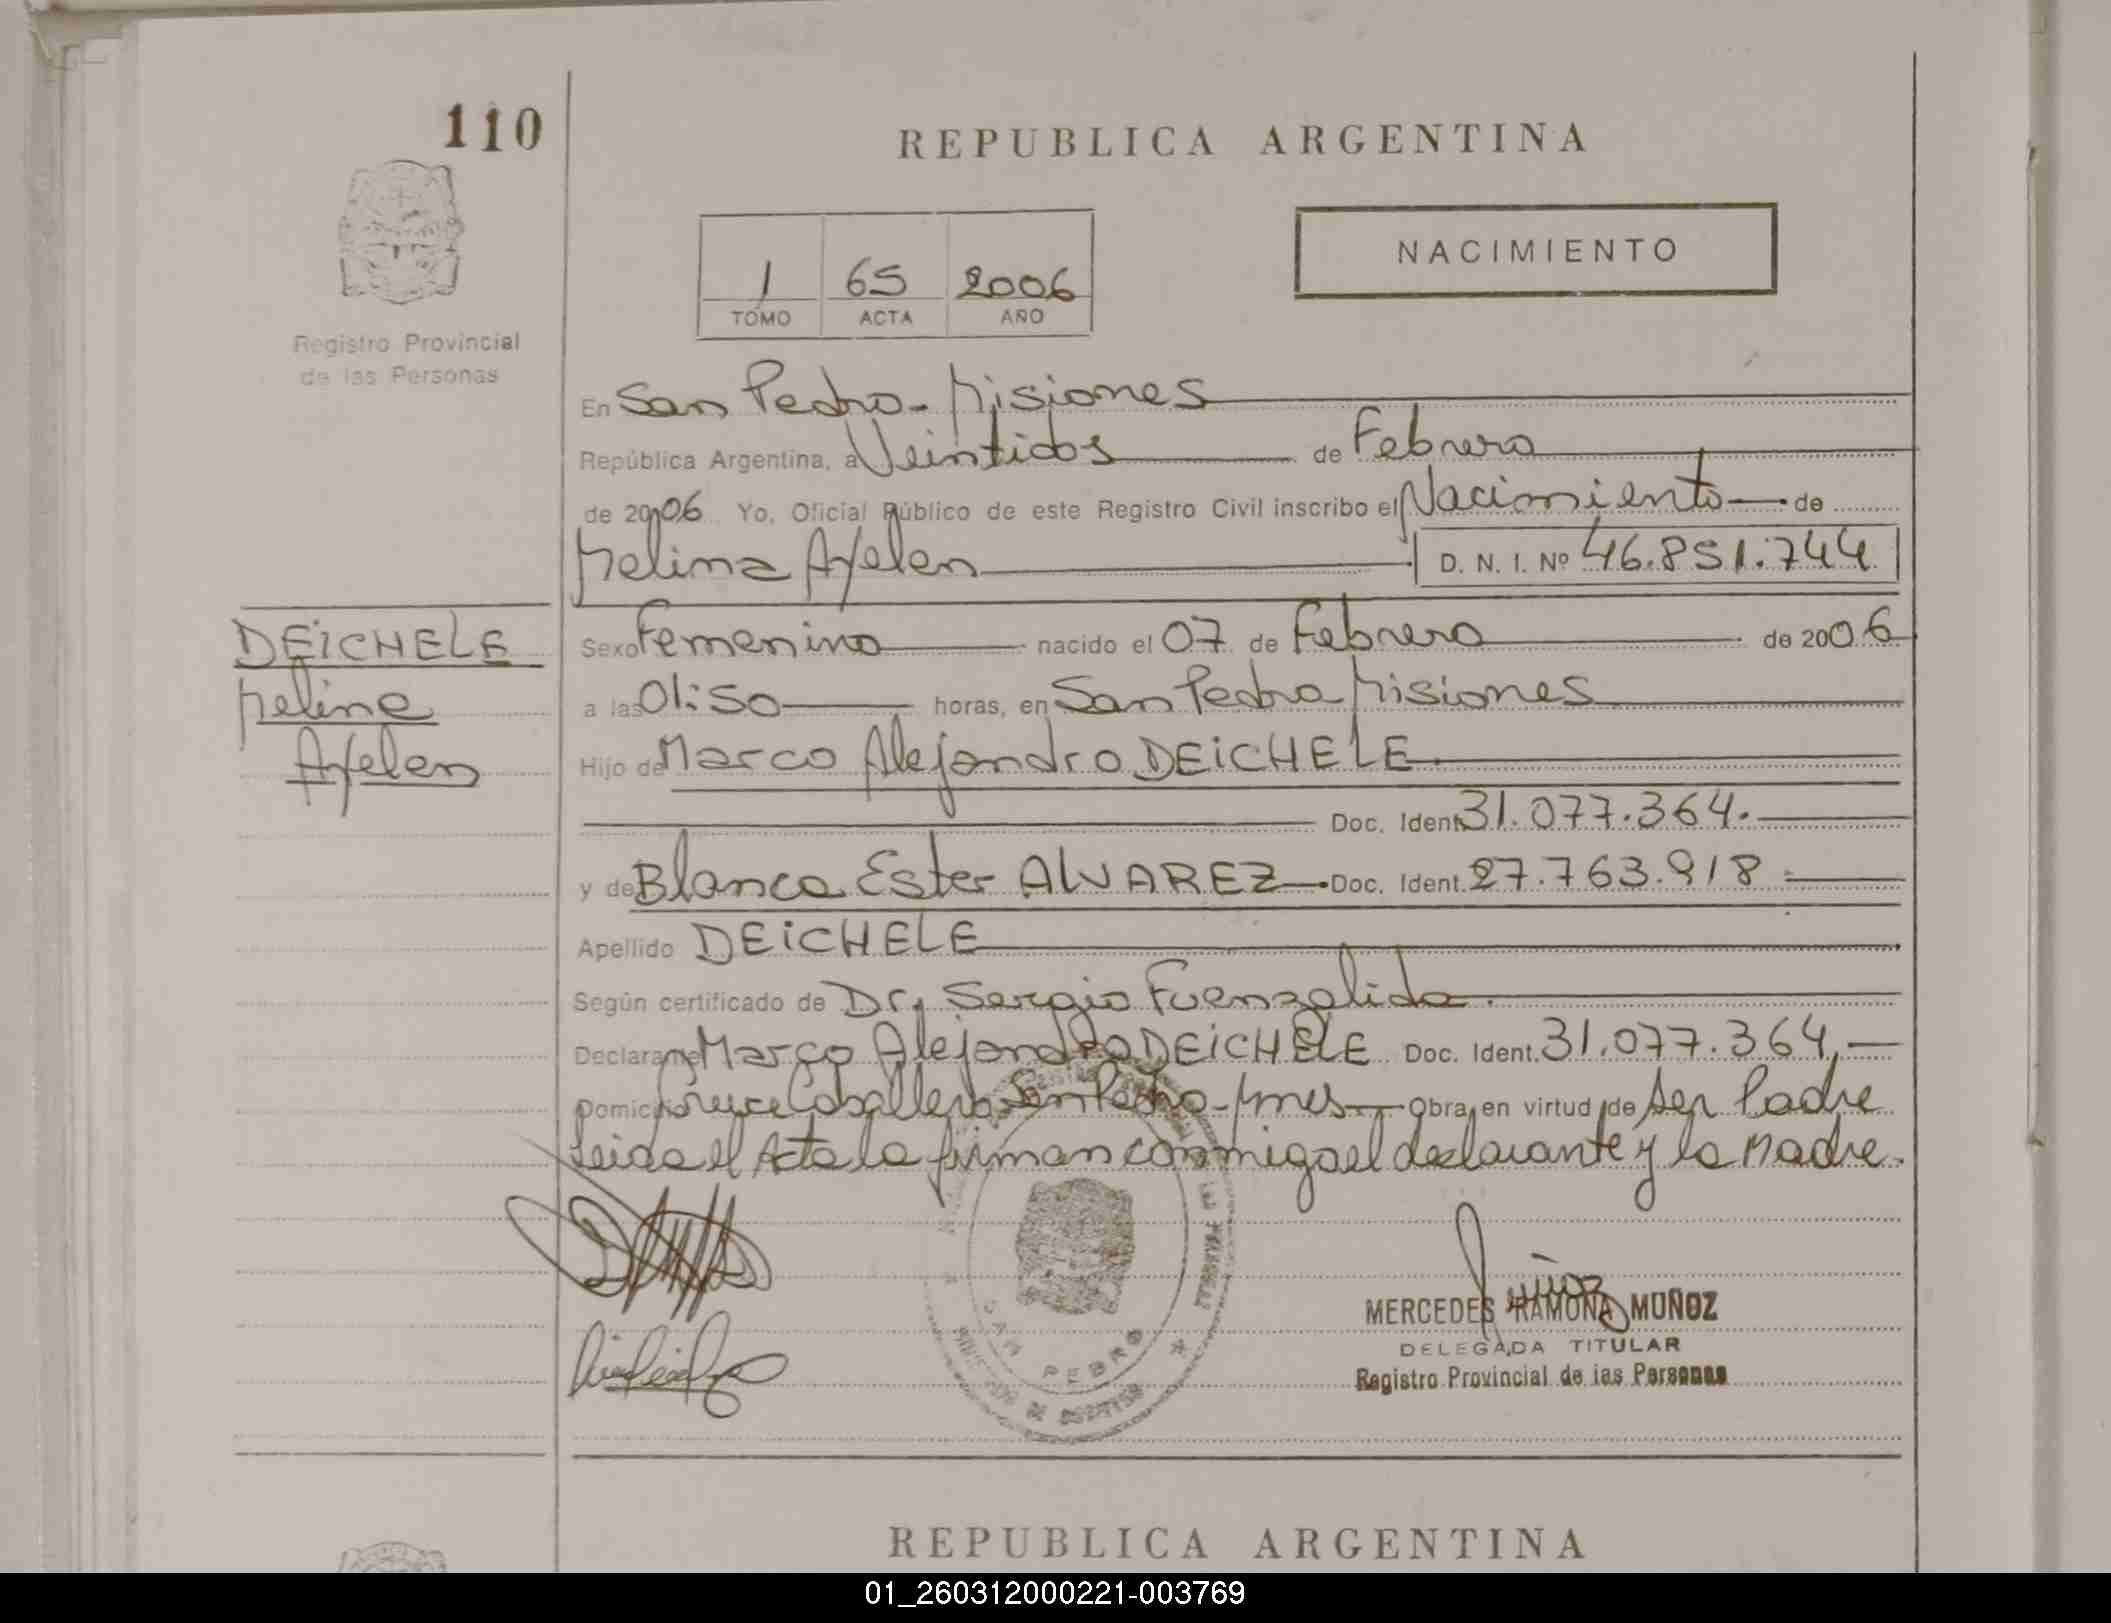 110
REPUBLICA ARGENTINA
NACIMIENTO
1 65 2006
TOMO ACTA AÑO
Registro Provincial
de las Personas
En San Pedro - Misiones
República Argentina, a Veintidos de Febrero
de 2006 Yo, Oficial Público de este Registro Civil inscribo el Nacimiento de
Melina Ayelen D. N. I. Nº 46.851.744
DEICHELE
Melina
Ayelen
Sexo Femenino nacido el 07 de Febrero de 2006
a las 01:50 horas, en San Pedro Misiones
Hijo de Marco Alejandro DEICHELE
Doc. Ident. 31.077.364.
y de Blanca Ester ALVAREZ Doc. Ident. 27.763.918
Apellido DEICHELE
Según certificado de Dr. Sergio Fuenzalida
Declarante Marco Alejandro DEICHELE Doc. Ident. 31.077.364
Domicilio Cruce Caballero San Pedro - Mnes Obra, en virtud de ser Padre
Leida el Acta la firman conmigo el declarante y la Madre.
SAN PEDRO
MERCEDES RAMONA MUÑOZ
DELEGADA TITULAR
Registro Provincial de las Personas
REPUBLICA ARGENTINA
01_260312000221-003769